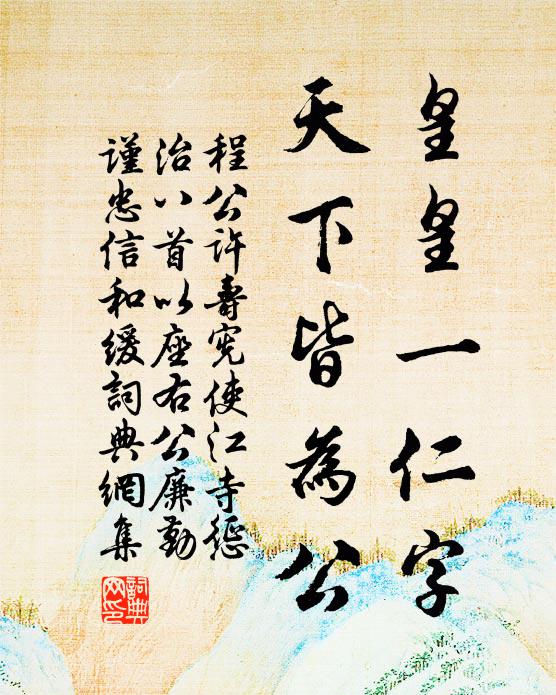 皇皇一仁字
天下皆為公
程公許壽宪使江寺丞
治八首以座右公廉勤
謹忠信和緩詞典網集
詞典網印